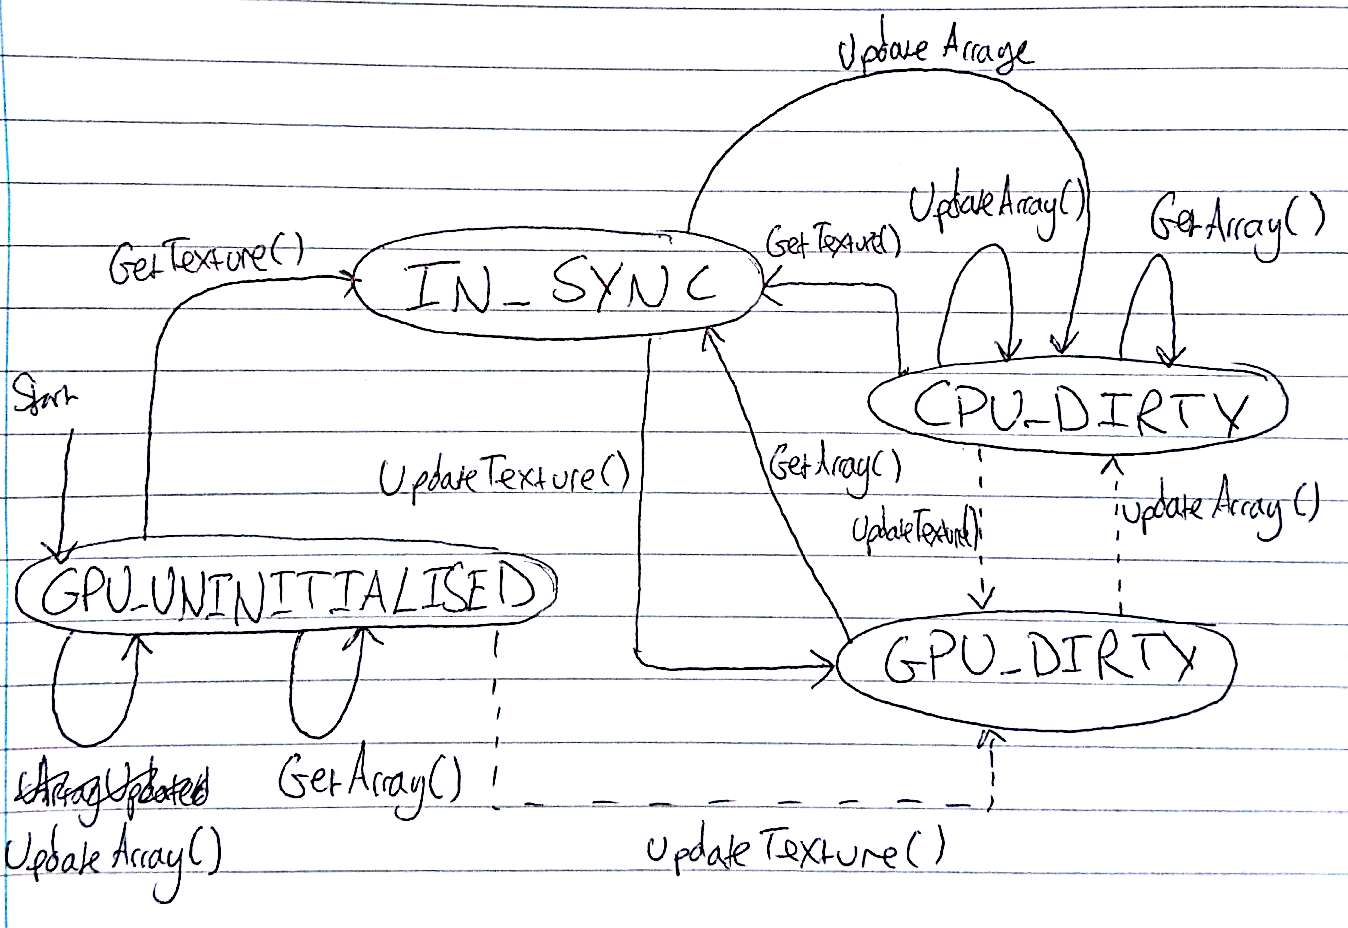 Update Arraye
UpdateArray()
GetArray()
GetTexture()
GetTexture()
IN_SYNC
Start
CPU_DIRTY
UpdateTexture()
GetArray()
UpdateArray()
UpdateTexture()
GPU_UNINITIALISED
GPU_DIRTY
ArrayUpdated
GetArray()
UpdateArray()
UpdateTexture()